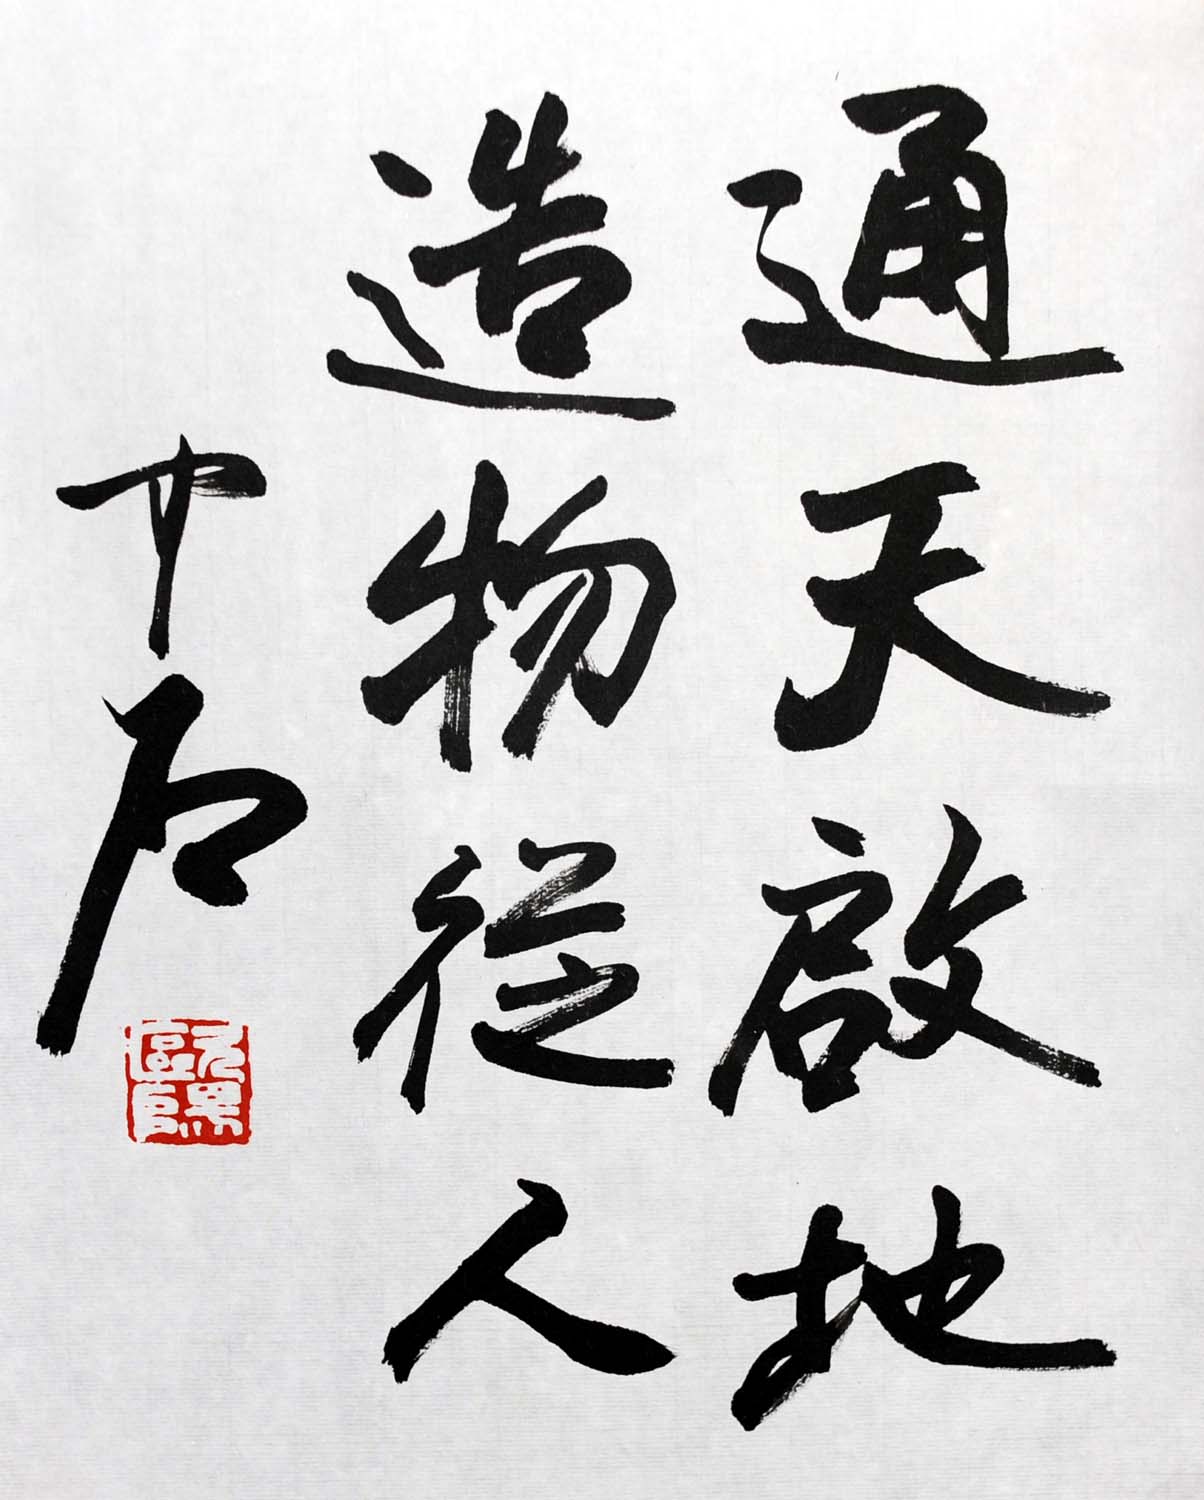 通天啟地
造物從人
中石